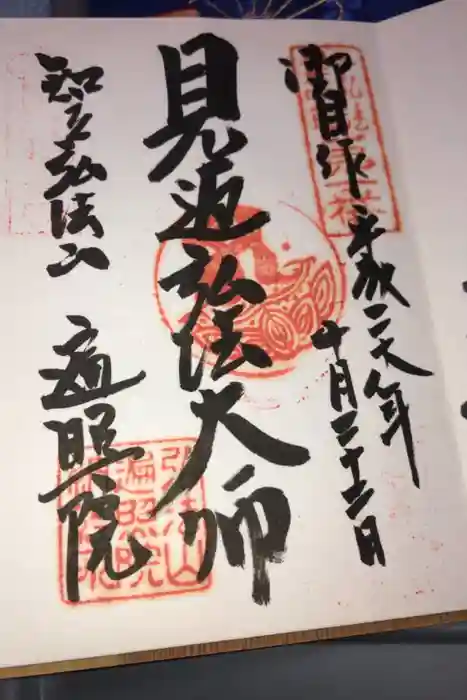 御自作 平成二六年
十月二十二日
見返弘法大師
知立弘法山 遍照院
弘法山
遍照院